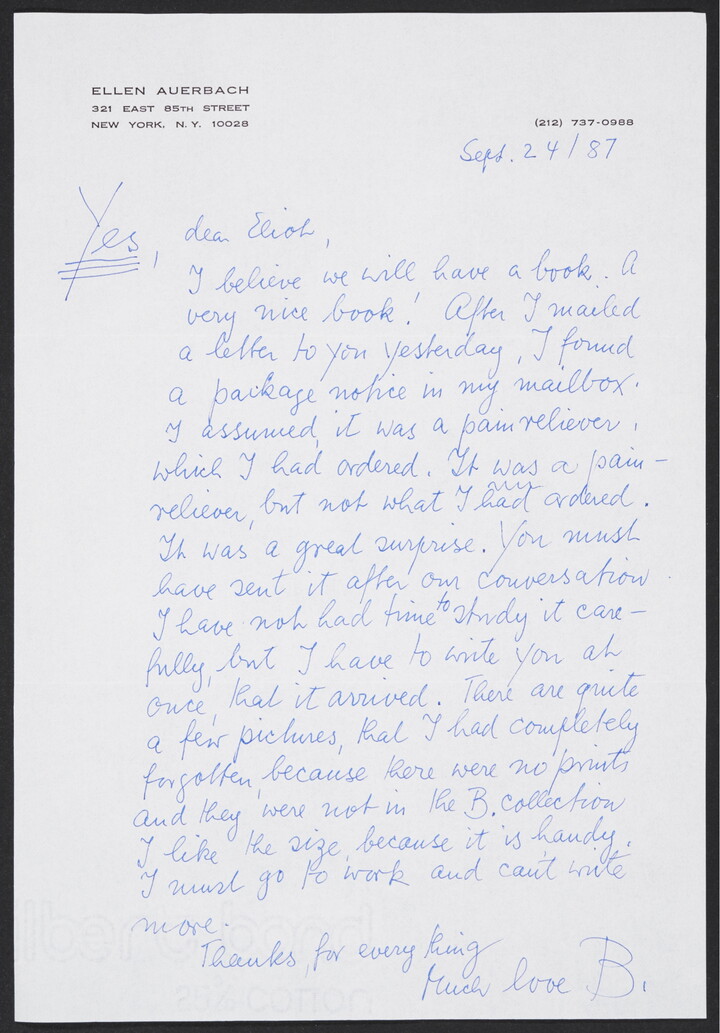 ELLEN AUERBACH
321 EAST 85TH STREET
NEW YORK, N. Y. 10028
(212) 737-0988
Sept. 24/87
Yes, dear Eliot,
I believe we will have a book. A
very nice book! After I mailed
a letter to you yesterday, I found
a package notice in my mailbox.
I assumed, it was a painreliever,
which I had ordered. It was a pain-
reliever, but not what I had ordered.
It was a great surprise. You must
have sent it after our conversation
I have not had time to study it care-
fully, but I have to write you at
once, that it arrived. There are quite
a few pictures, that I had completely
forgotten, because there were no prints
and they were not in the B. collection
I like the size, because it is handy.
I must go to work and can't write
more.
Thanks, for everything
Much love B.